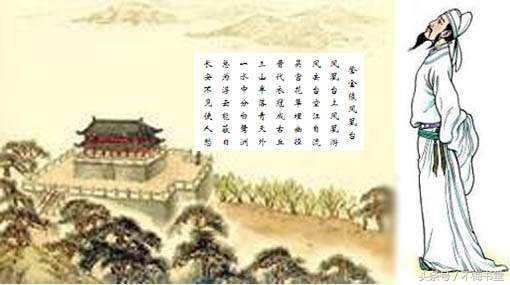 登金陵凤凰台
凤凰台上凤凰游
凤去台空江自流
吴宫花草埋幽径
晋代衣冠成古丘
三山半落青天外
一水中分白鹭洲
总为浮云能蔽日
长安不见使人愁
头条号